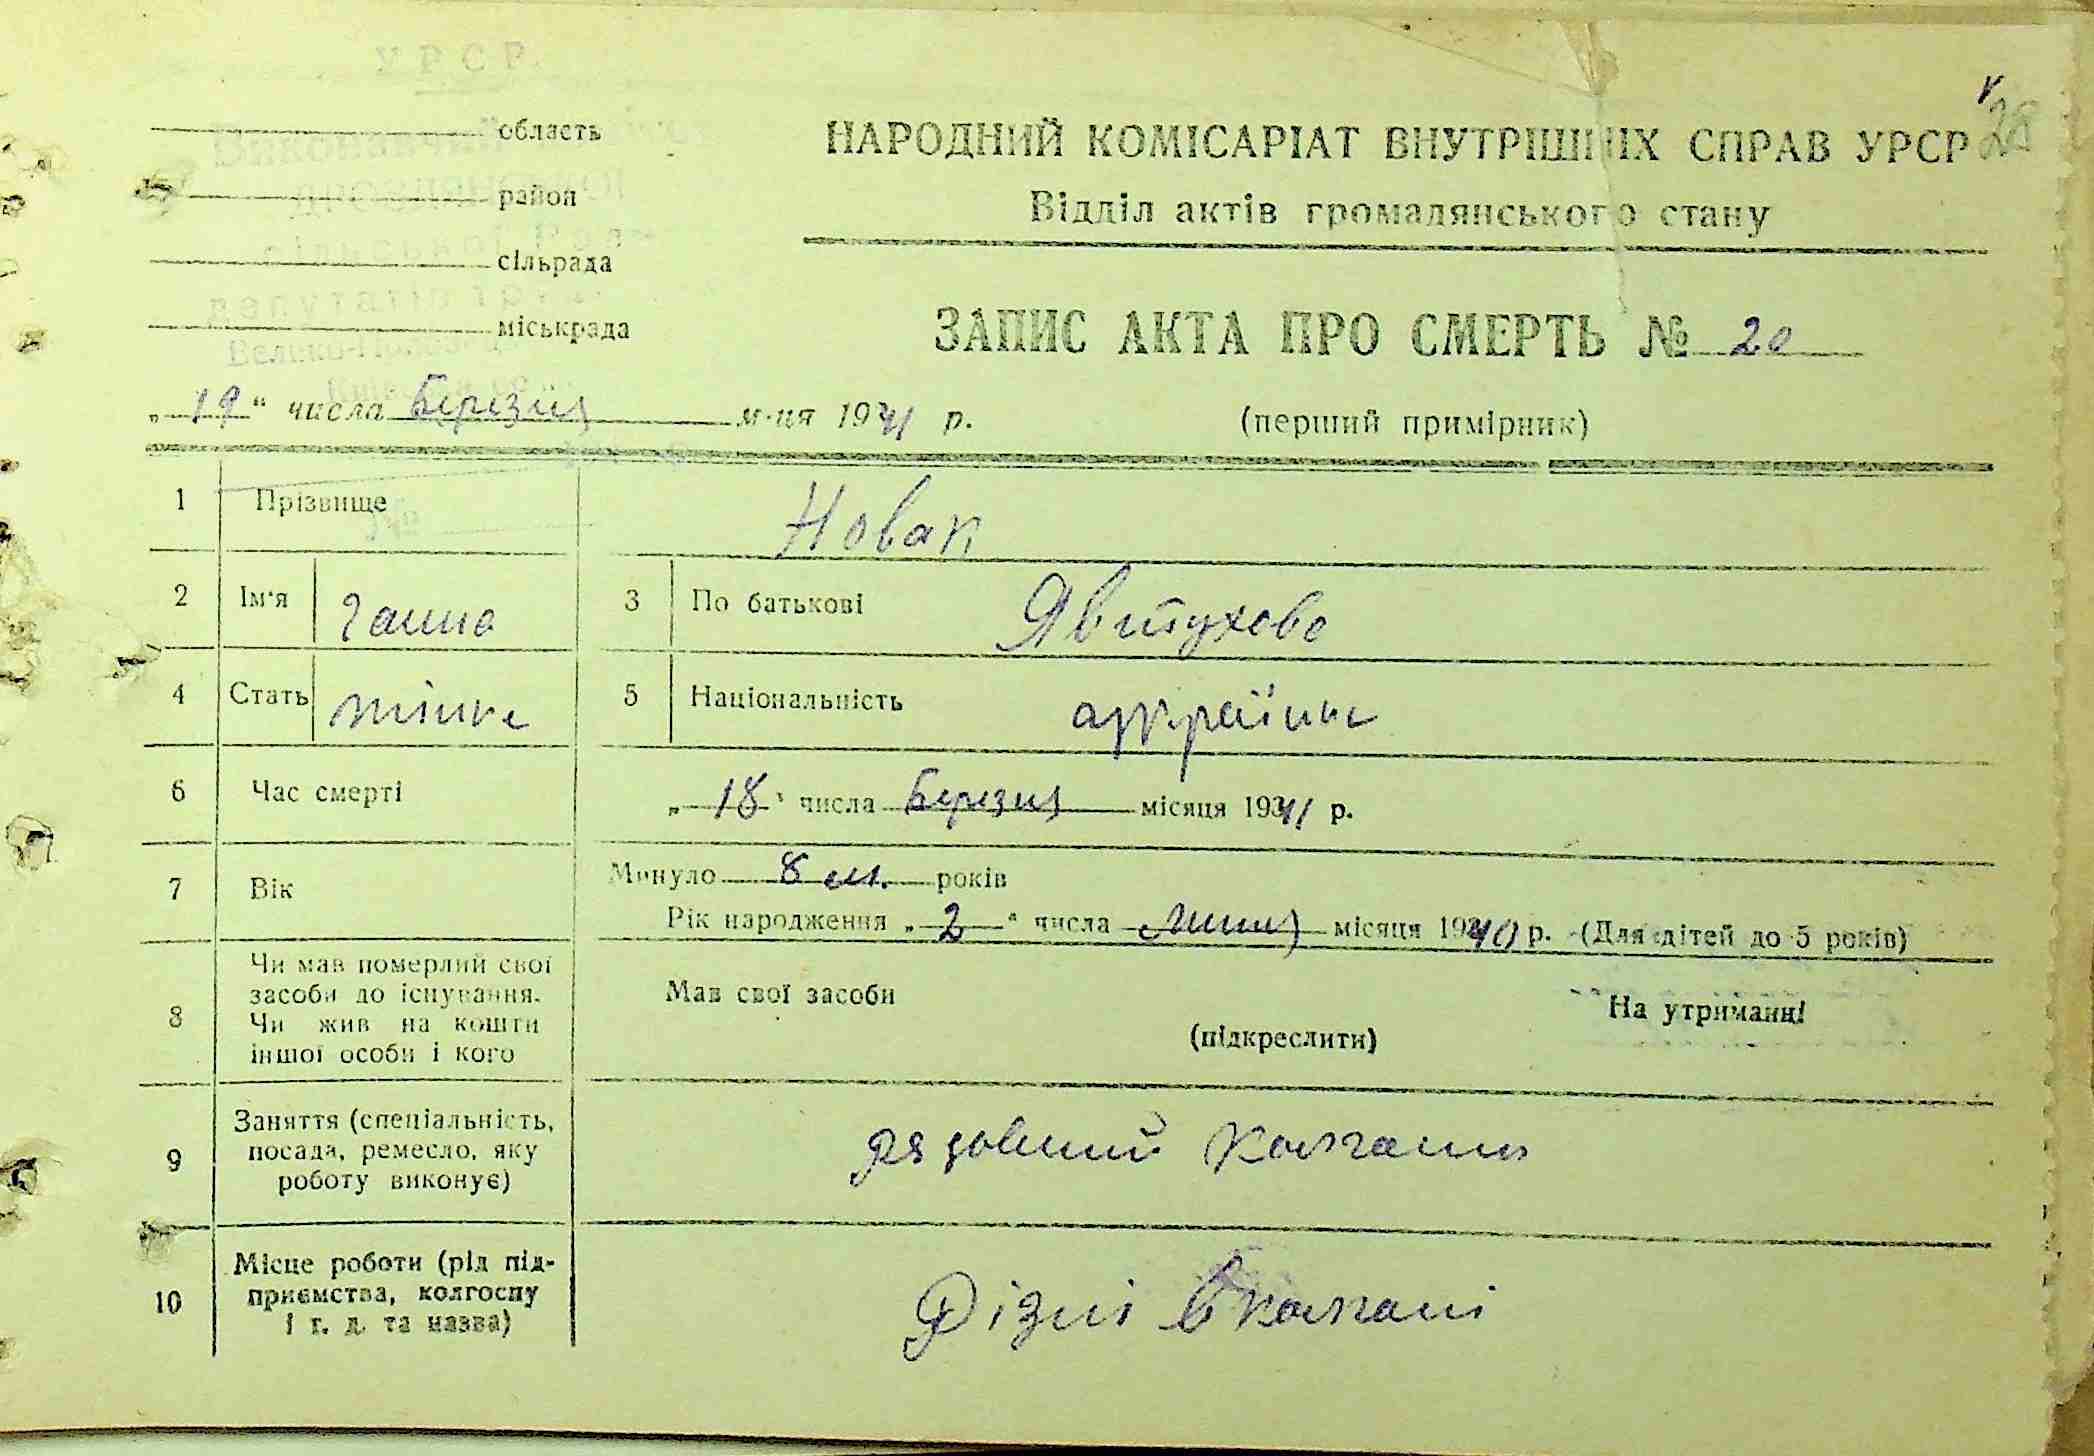 УРСР
Виконавчий
сільської Ради
депутатів
28
область
район
сільрада
міськрада
НАРОДНИЙ КОМІСАРІАТ ВНУТРІШНІХ СПРАВ УРСР
Відділ актів громадянського стану
ЗАПИС АКТА ПРО СМЕРТЬ № 20
„19“ числа Березня м-ця 1941 р.
(перший примірник)
1 Прізвище Новак
2 Ім'я Ганна 3 По батькові Явтухова
4 Стать жінка 5 Національність
6 Час смерті „18“ числа Березня місяця 1941 р.
7 Вік Минуло 8 м. років
Рік народження „2“ числа липня місяця 1940 р. (Для дітей до 5 років)
8 Чи мав померлий свої
засоби до існування.
Чи жив на кошти
іншої особи і кого
Мав свої засоби
(підкреслити)
На утриманні
9 Заняття (спеціальність,
посада, ремесло, яку
роботу виконує)
рядовий
10 Місце роботи (рід під-
приємства, колгоспу
і т. д. та назва)
Різні в